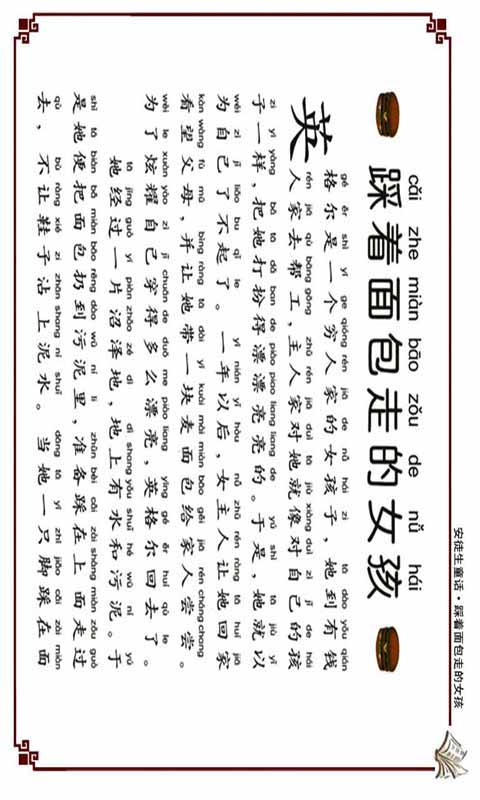 安徒生童话·踩着面包走的女孩
cǎi zhe miàn bāo zǒu de nǚ hái
踩着面包走的女孩
英
gé ěr shì yī ge qióng rén jiā de nǚ hái zǐ tā dào yǒu qián
格尔是一个穷人家的女孩子，她到有钱
rén jiā qù bāng gōng zhǔ rén jiā duì tā jiù xiàng duì zì jǐ de hái
人家去帮工，主人家对她就像对自己的孩
zi yī yàng bǎ tā dǎ ban de piào piao liang liang de yú shì tā jiù yǐ
子一样，把她打扮得漂漂亮亮的。于是，她就以
wéi zì jǐ liǎo bu qǐ le yī nián yǐ hòu nǚ zhǔ rén ràng tā huí jiā
为自己了不起了。一年以后，女主人让她回家
kàn wàng fù mǔ bìng ràng tā dài yī kuài mài miàn bāo gěi jiā rén cháng chang
看望父母，并让她带一块麦面包给家人尝尝。
wèi le xuàn yào zì jǐ chuān de duō me piào liang yīng gé ěr huí qù le
为了炫耀自己穿得多么漂亮，英格尔回去了。
tā jīng guò yī piàn zhǎo zé dì dì shang yǒu shuǐ hé wū ní yú
她经过一片沼泽地，地上有水和污泥。于
shì tā biàn bǎ miàn bāo rēng dào wū ní lǐ zhǔn bèi cǎi zài shàng miàn zǒu guò
是她便把面包扔到污泥里，准备踩在上面走过
qù bù ràng xié zi zhān shang ní shuǐ dāng tā yī zhī jiǎo cǎi zài miàn
去，不让鞋子沾上泥水。当她一只脚踩在面